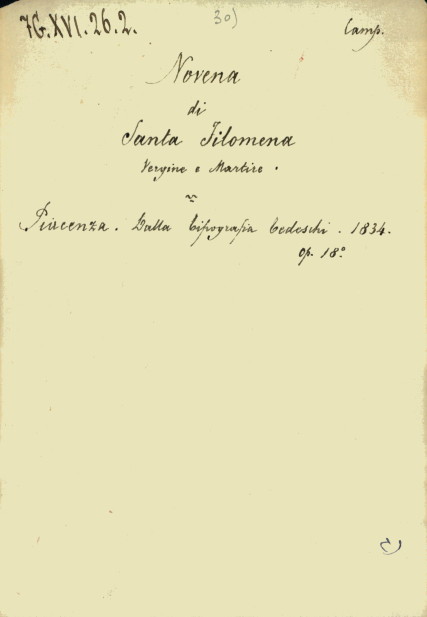 7G.XVI.26.2.
30)
Camp.
Novena
di
Santa Filomena
Vergine e Martire.
Piacenza. Dalla tipografia Tedeschi. 1834.
op. 18°